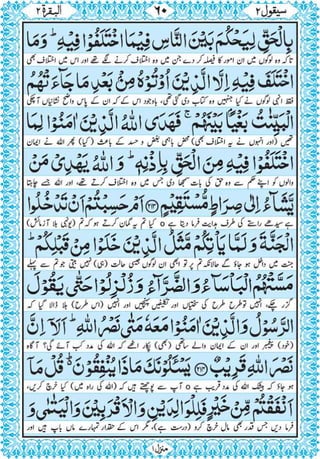 سیقول ۲
۶۰
البقرۃ ۲
بِالْحَقِّ لِيَحْكُمَ بَيْنَ النَّاسِ فِيْمَا اخْتَلَفُوْا فِيْهِ ؕ وَمَا
تاکہ وہ لوگوں میں ان امور کا فیصلہ کر دے جن میں وہ اختلاف کرنے لگے تھے اور اس میں اختلاف بھی
اخْتَلَفَ فِيْهِ اِلَّا الَّذِيْنَ اُوْتُوْهُ مِنْۢ بَعْدِ مَا جَآءَتْهُمُ
فقط انہی لوگوں نے کیا جنہیں وہ کتاب دی گئی تھی، باوجود اس کے کہ ان کے پاس واضح نشانیاں آ چکی
الْبَيِّنٰتُ بَغْيًۢا بَيْنَهُمْ ۚ فَهَدَى اللّٰهُ الَّذِيْنَ اٰمَنُوْا لِمَا
تھیں (اور انہوں نے یہ اختلاف بھی) محض باہمی بغض و حسد کے باعث (کیا) پھر اللہ نے ایمان
اخْتَلَفُوْا فِيْهِ مِنَ الْحَقِّ بِاِذْنِهٖ ؕ وَ اللّٰهُ يَهْدِيْ مَنْ
والوں کو اپنے حکم سے وہ حق کی بات سمجھا دی جس میں وہ اختلاف کرتے تھے، اور اللہ جسے چاہتا
يَّشَآءُ اِلٰى صِرَاطٍ مُّسْتَقِيْمٍ ﴿۲۱۳﴾ اَمْ حَسِبْتُمْ اَنْ تَدْخُلُوا
ہے سیدھے راستے کی طرف ہدایت فرما دیتا ہے o کیا تم یہ گمان کرتے ہو کہ تم (یونہی بلا آزمائش)
الْجَنَّةَ وَ لَمَّا يَاْتِكُمْ مَّثَلُ الَّذِيْنَ خَلَوْا مِنْ قَبْلِكُمْ ؕ
جنت میں داخل ہو جاؤ گے حالانکہ تم پر تو ابھی ان لوگوں جیسی حالت (ہی) نہیں بیتی جو تم سے پہلے
مَسَّتْهُمُ الْبَاْسَآءُ وَ الضَّرَّآءُ وَ زُلْزِلُوْا حَتّٰى يَقُوْلَ
گزر چکے، انہیں تو طرح طرح کی سختیاں اور تکلیفیں پہنچیں اور انہیں (اس طرح) ہلا ڈالا گیا کہ
الرَّسُوْلُ وَ الَّذِيْنَ اٰمَنُوْا مَعَهٗ مَتٰى نَصْرُ اللّٰهِ ؕ اَلَاۤ اِنَّ
(خود) پیغمبر اور ان کے ایمان والے ساتھی (بھی) پکار اٹھے کہ اللہ کی مدد کب آئے گی؟ آگاہ
نَصْرَ اللّٰهِ قَرِيْبٌ ﴿۲۱۴﴾ يَسْـَٔلُوْنَكَ مَاذَا يُنْفِقُوْنَ ؕ قُلْ مَاۤ
ہو جاؤ کہ بیشک اللہ کی مدد قریب ہے o آپ سے پوچھتے ہیں کہ (اللہ کی راہ میں) کیا خرچ کریں،
اَنْفَقْتُمْ مِّنْ خَيْرٍ فَلِلْوَالِدَيْنِ وَ الْاَقْرَبِيْنَ وَ الْيَتٰمٰى وَ
فرما دیں جس قدر بھی مال خرچ کرو (درست ہے)، مگر اس کے حقدار تمہارے ماں باپ ہیں اور
منزل ۱